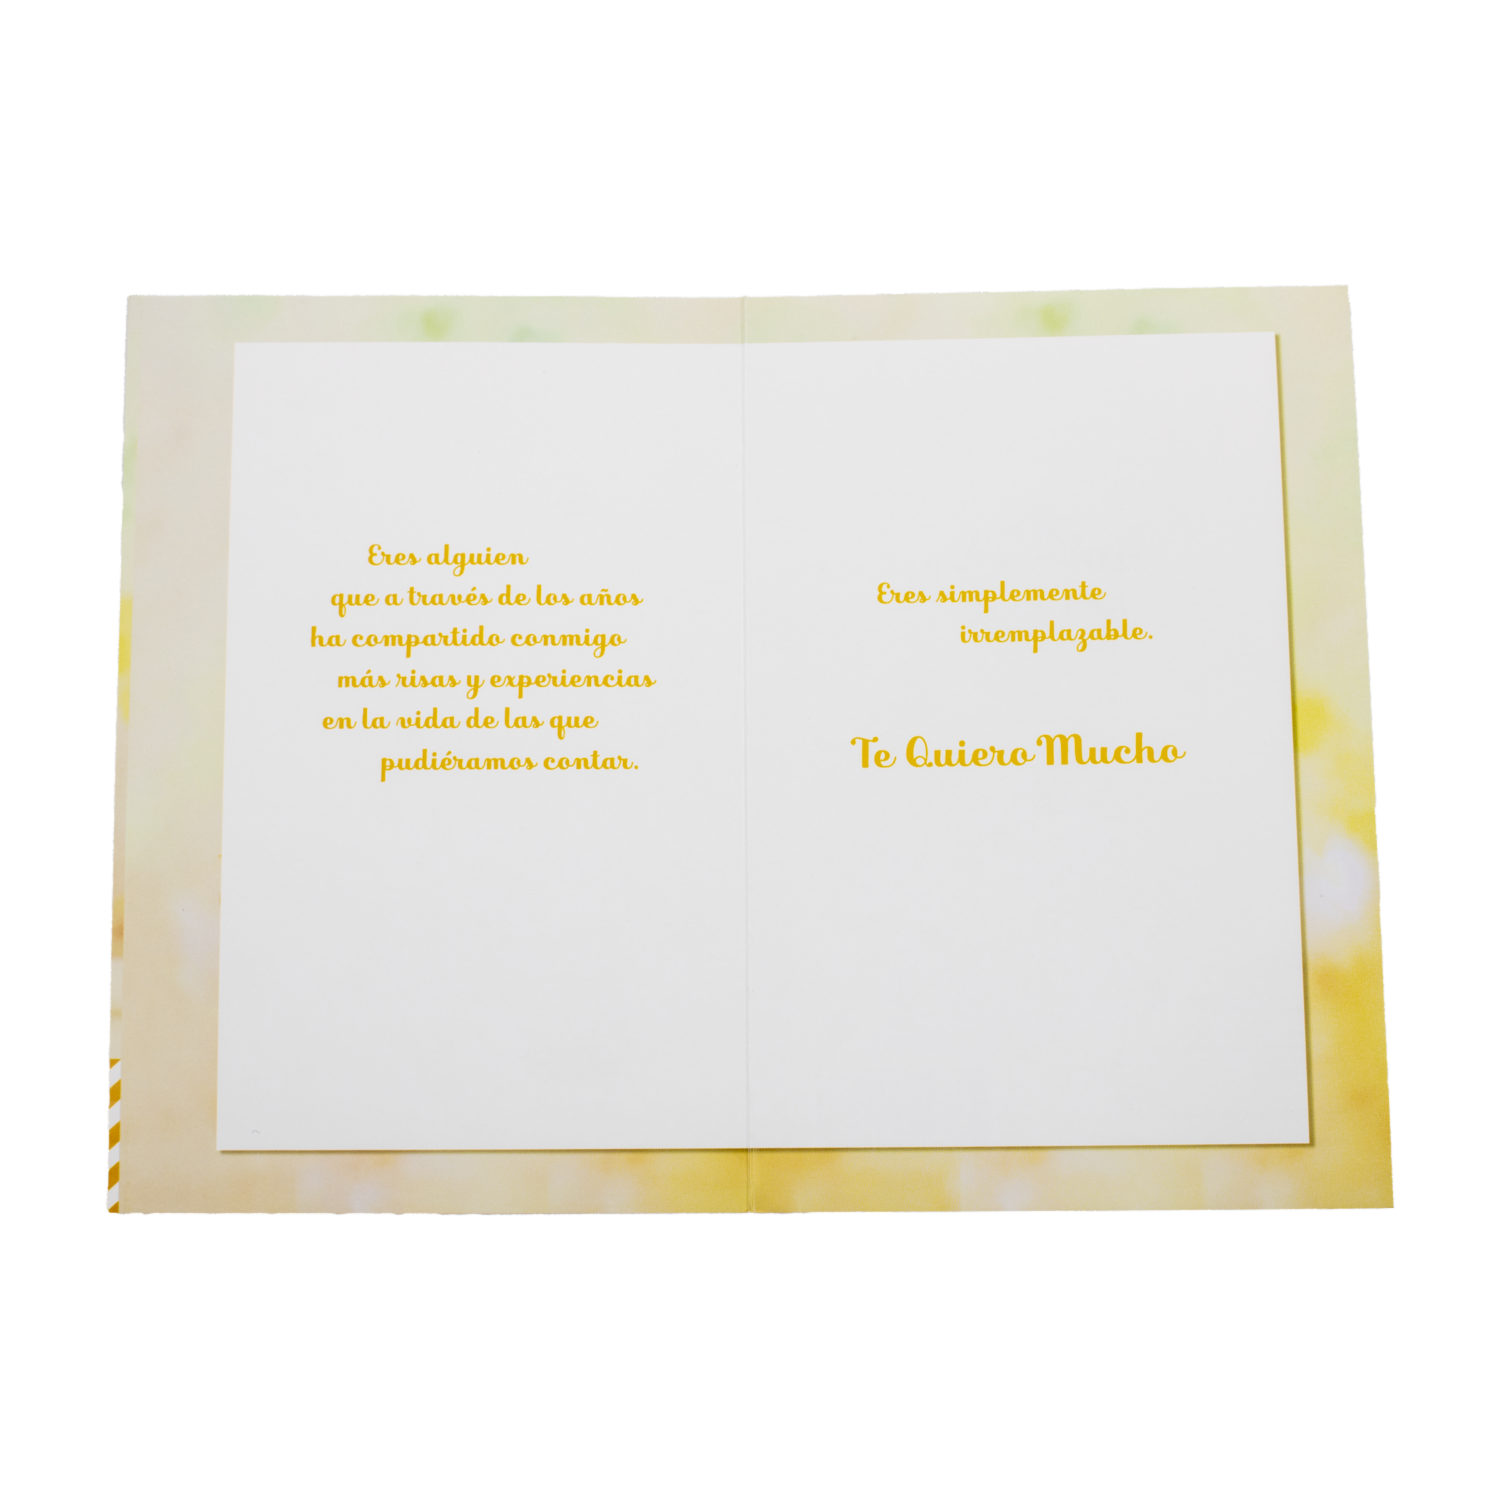 Eres alguien
que a través de los años
ha compartido conmigo
más risas y experiencias
en la vida de las que
pudiéramos contar.
Eres simplemente
irremplazable.
Te Quiero Mucho